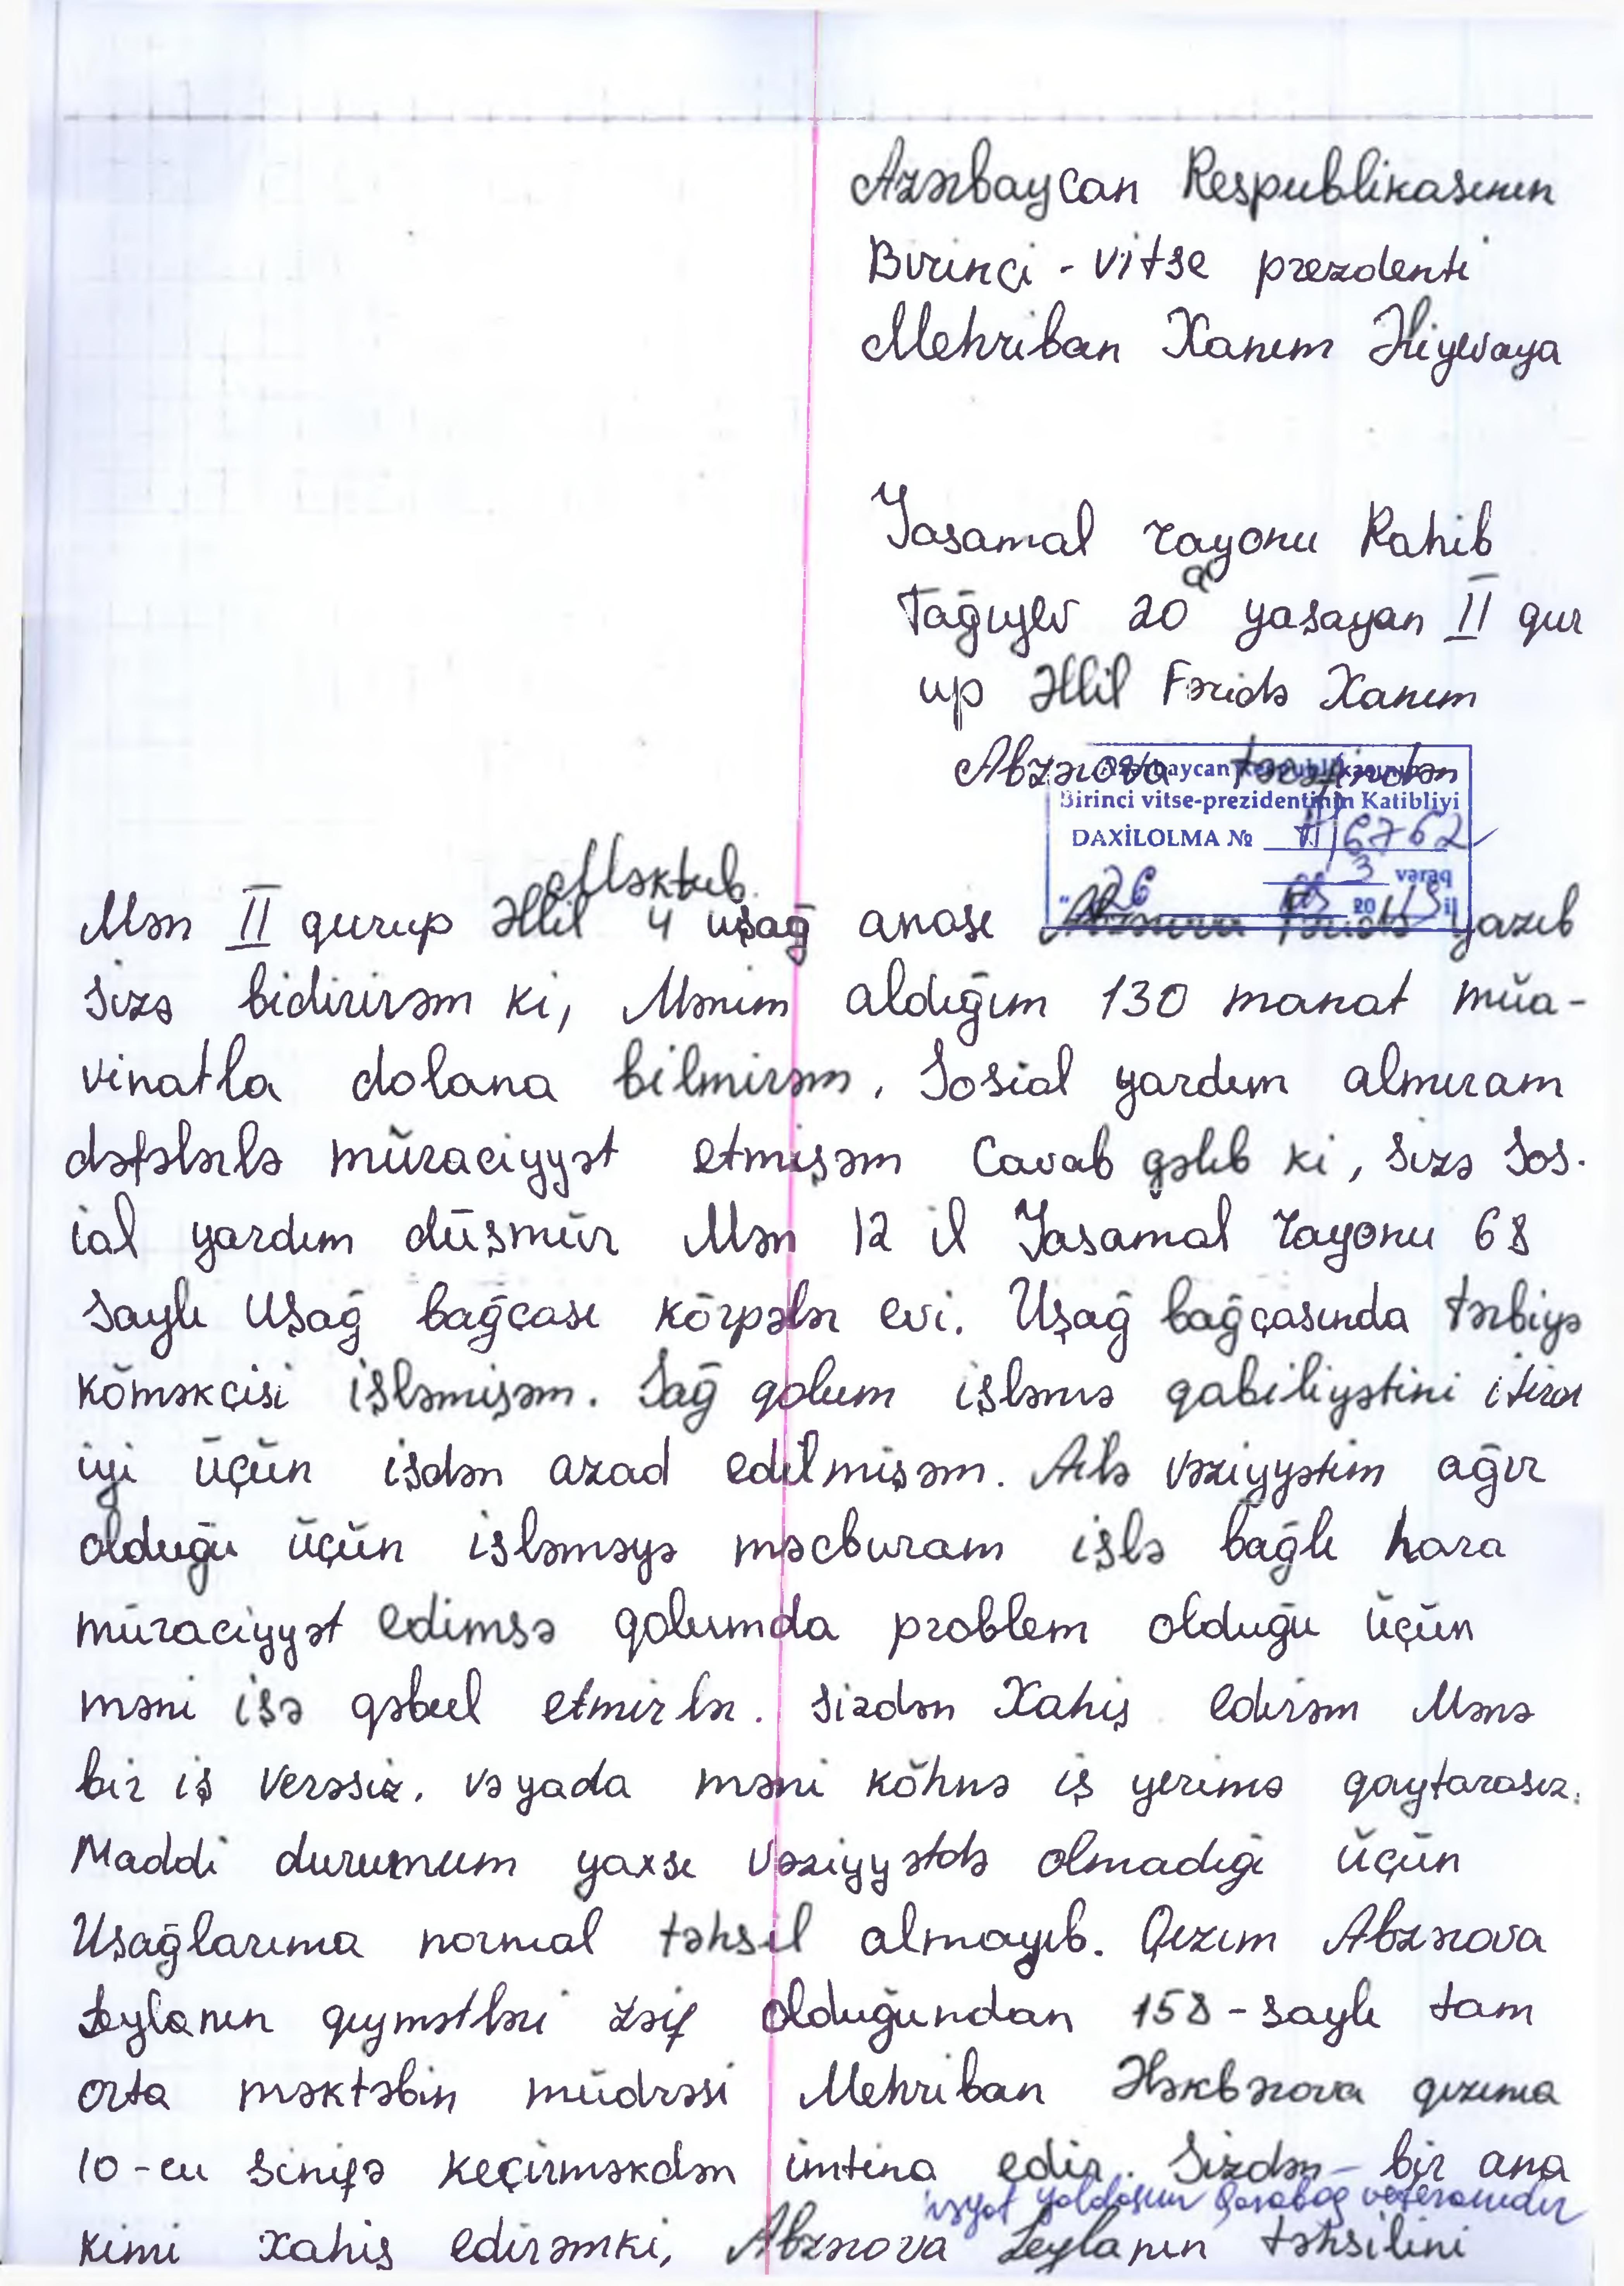 Azərbaycan Respublikasının
Birinçi - vitse prezdenti
Mehriban Xanım Əliyevaya
Yasamal rayonu Rahib
Tağıyev 20 a yaşayan II qur
up Əllil Fəridə Xanım
Abzərova tərəfindən
Azərbaycan Respublikasının
Birinci vitse-prezidentinin Katibliyi
DAXİLOLMA № 6762
3 vərəq
" 26 20 il
Məktub.
Mən II qurup əllil 4 uşağ anası yazıb
sizə bidirirəm ki, Mənim aldığım 130 manat müa-
vinatla dolana bilmirəm. Sosial yardım almıram
dəfələrlə müraciyyət etmişəm Cavab gəlib ki, sizə Sos-
ial yardım düşmür Mən 12 il Yasamal rayonu 68
saylı Uşağ bağçası körpələr evi. Uşağ bağçasında tərbiyə
köməkçisi işləmişəm. Sağ qolum işləmə qabiliyətini itirər
iyi üçün işdən azad edilmişəm. Ailə vəziyyətim ağır
olduğu üçün işləməyə məcburam işlə bağlı hara
müraciyyət edimsə qolumda problem olduğu üçün
məni işə qəbul etmirlər. Sizdən Xahiş edirəm Mənə
bir iş verəsiz. vəyada məni köhnə iş yerimə qaytarasız.
Maddi durumum yaxşı vəziyyətdə olmadığı üçün
Uşağlarıma normal təhsil almayıb. Qızım Abzərova
Leylanın qıymətləri zəif olduğundan 158-saylı tam
orta məktəbin müdrəsi Mehriban Ələkbərova qızıma
10-cu sinifə keçirməkdən imtina edir. Sizdən bir ana
həyat yoldaşım Qarabağ veteranıdır
kimi xahiş edirəmki, Abzərova Leylanın təhsilini